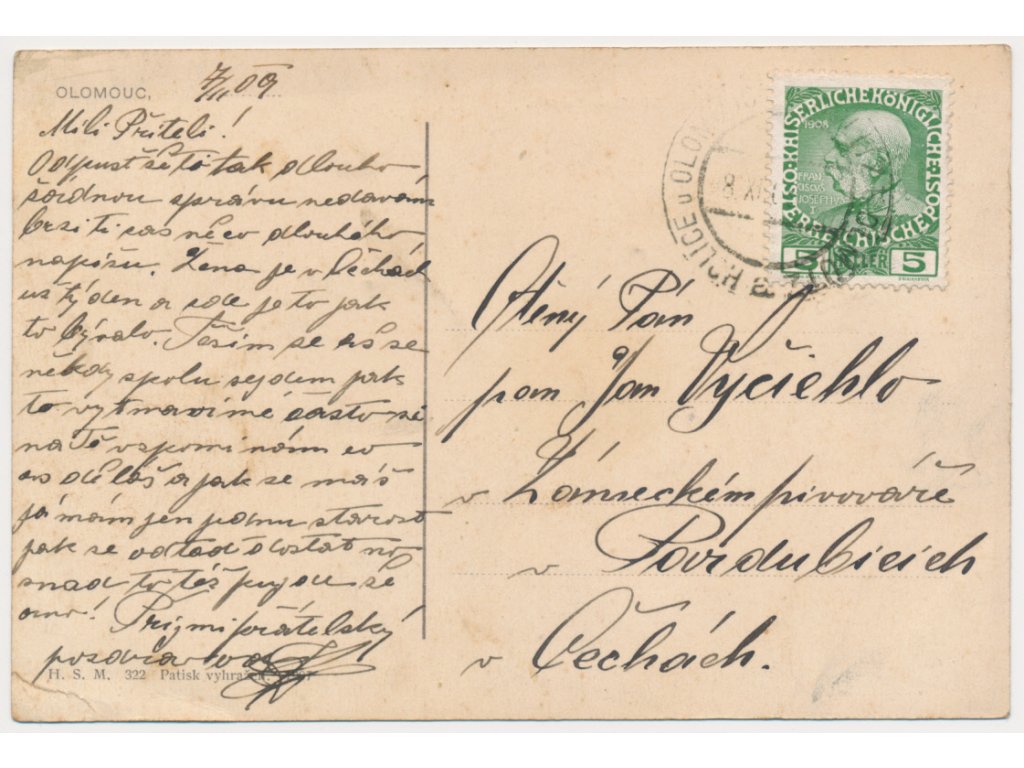 OLOMUOC, 7/II 09
Mili Příteli!
Odpust še ti tak dlouho
šádnou správu nedavám
brzi ti sas něco dlouhého
napíšu. Žena je v Čechách
us týden a sde je to jak
to bývalo. Těším se as se
někdy spolu sejdem jak
to vytmavíme často si
na Tě vspomínám co
as děláš a jak se máš
já mám jen jednu starost
jak se odtad dostat no
snad to též pujde še
ano! Prijmi přátelský
pozdrav od
H. S. M. 322 Patisk vyhra
KAISERLICHE KÖNIGLICHE ÖSTERREICHISCHE POST
1908
FRAN
CISCUS
JOSEPHUS
I
5 HELLER 5
HOLICE u OLOM
8 XI
Ctěný Pán
pan Jan Vyčichlo
v Zámeckém pivováře
v Pardubicích
v Čechách.